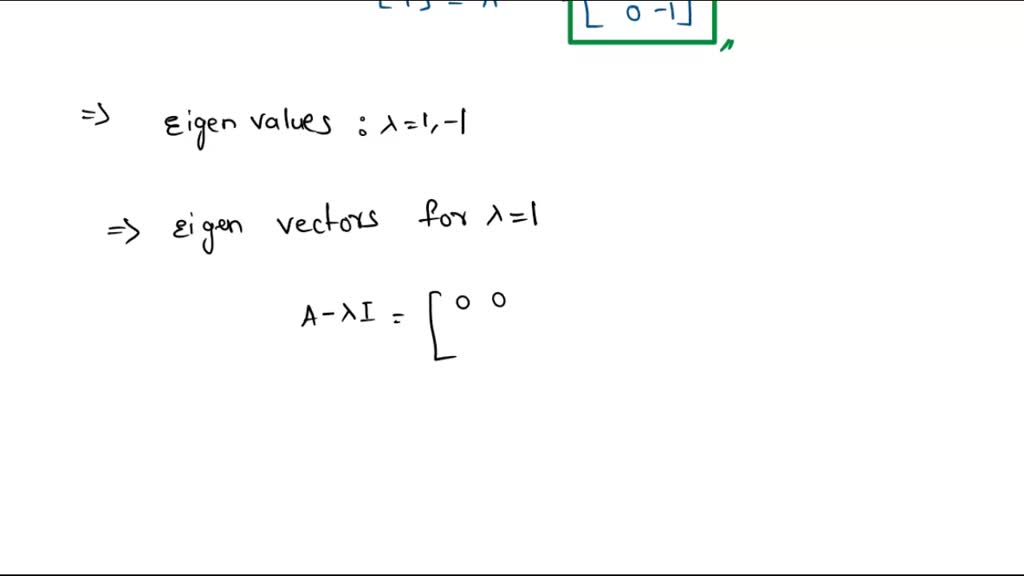 [ 0 -1]
=> Eigen values : λ=1,-1
=> eigen vectors for λ=1
A-λI = [ 0 0